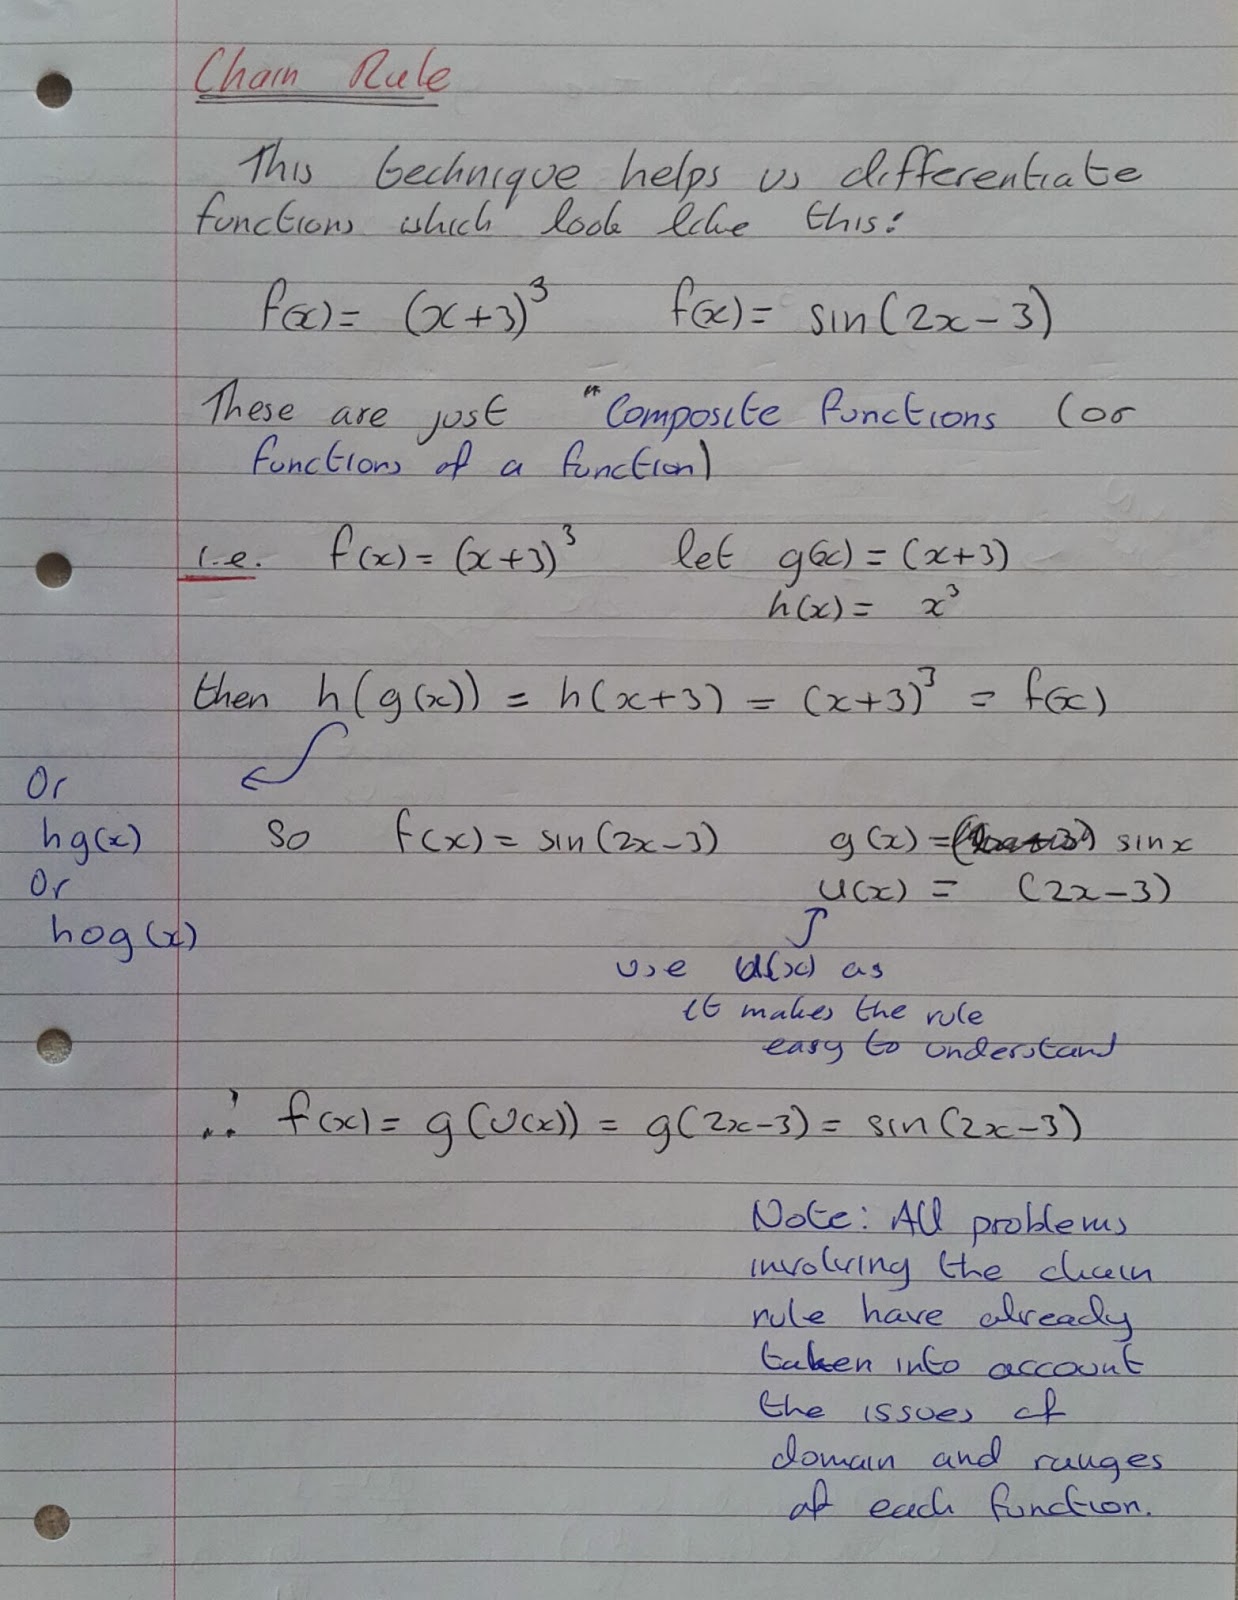 Chain Rule
This technique helps us differentiate
functions which look like this:
f(x) = (x+3)³ f(x) = sin(2x-3)
These are just "Composite functions (or
functions of a function)
i.e. f(x) = (x+3)³ let g(x) = (x+3)
h(x) = x³
then h(g(x)) = h(x+3) = (x+3)³ = f(x)
Or
hg(x)
Or
hog(x)
so f(x) = sin(2x-3) g(x) = sinx
u(x) = (2x-3)
use u(x) as
it makes the rule
easy to understand
∴ f(x) = g(u(x)) = g(2x-3) = sin(2x-3)
Note: All problems
involving the chain
rule have already
taken into account
the issues of
domain and ranges
of each function.